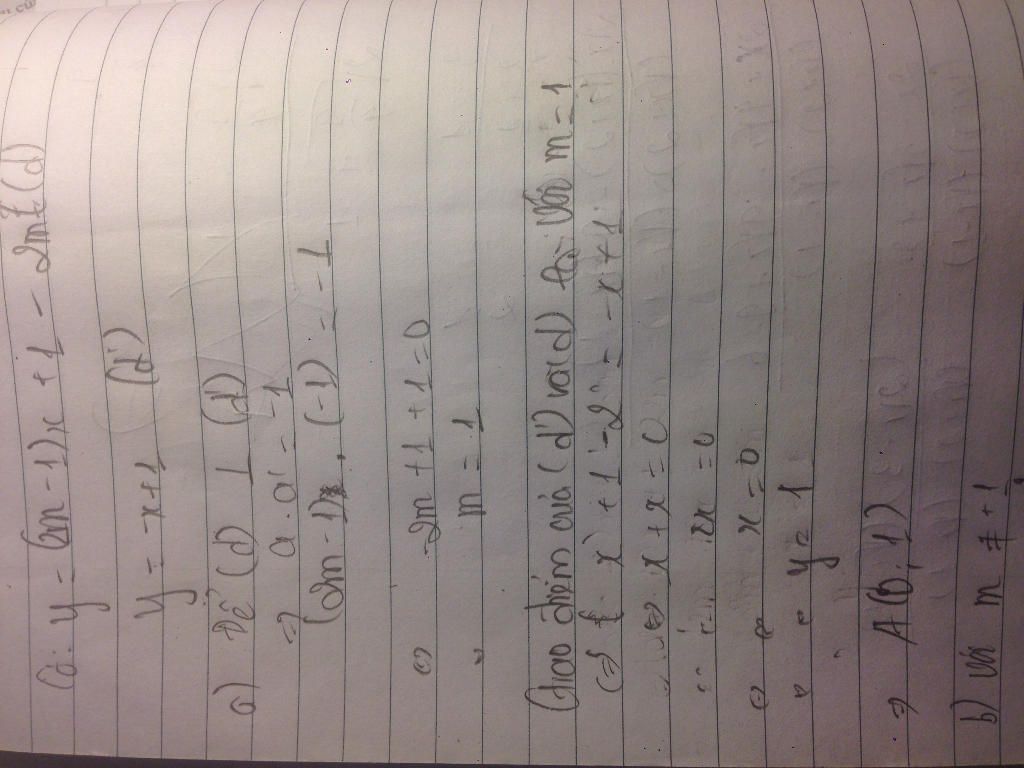 Cd: y = (2m - 1)x + 1 - 2m² (d)
y = -x+1 (d')
a) Để (d) ⊥ (d')
=> a . a' = -1
(2m - 1) . (-1) = -1
<=> -2m + 1 + 1 = 0
m = 1
Giao điểm của (d') và (d) Với m = 1
x + 1 - 2 = -x + 1
<=> x + x = 0
2x = 0
<=> x = 0
y = 1
=> A(0; 1)
b) với m ≠ +1